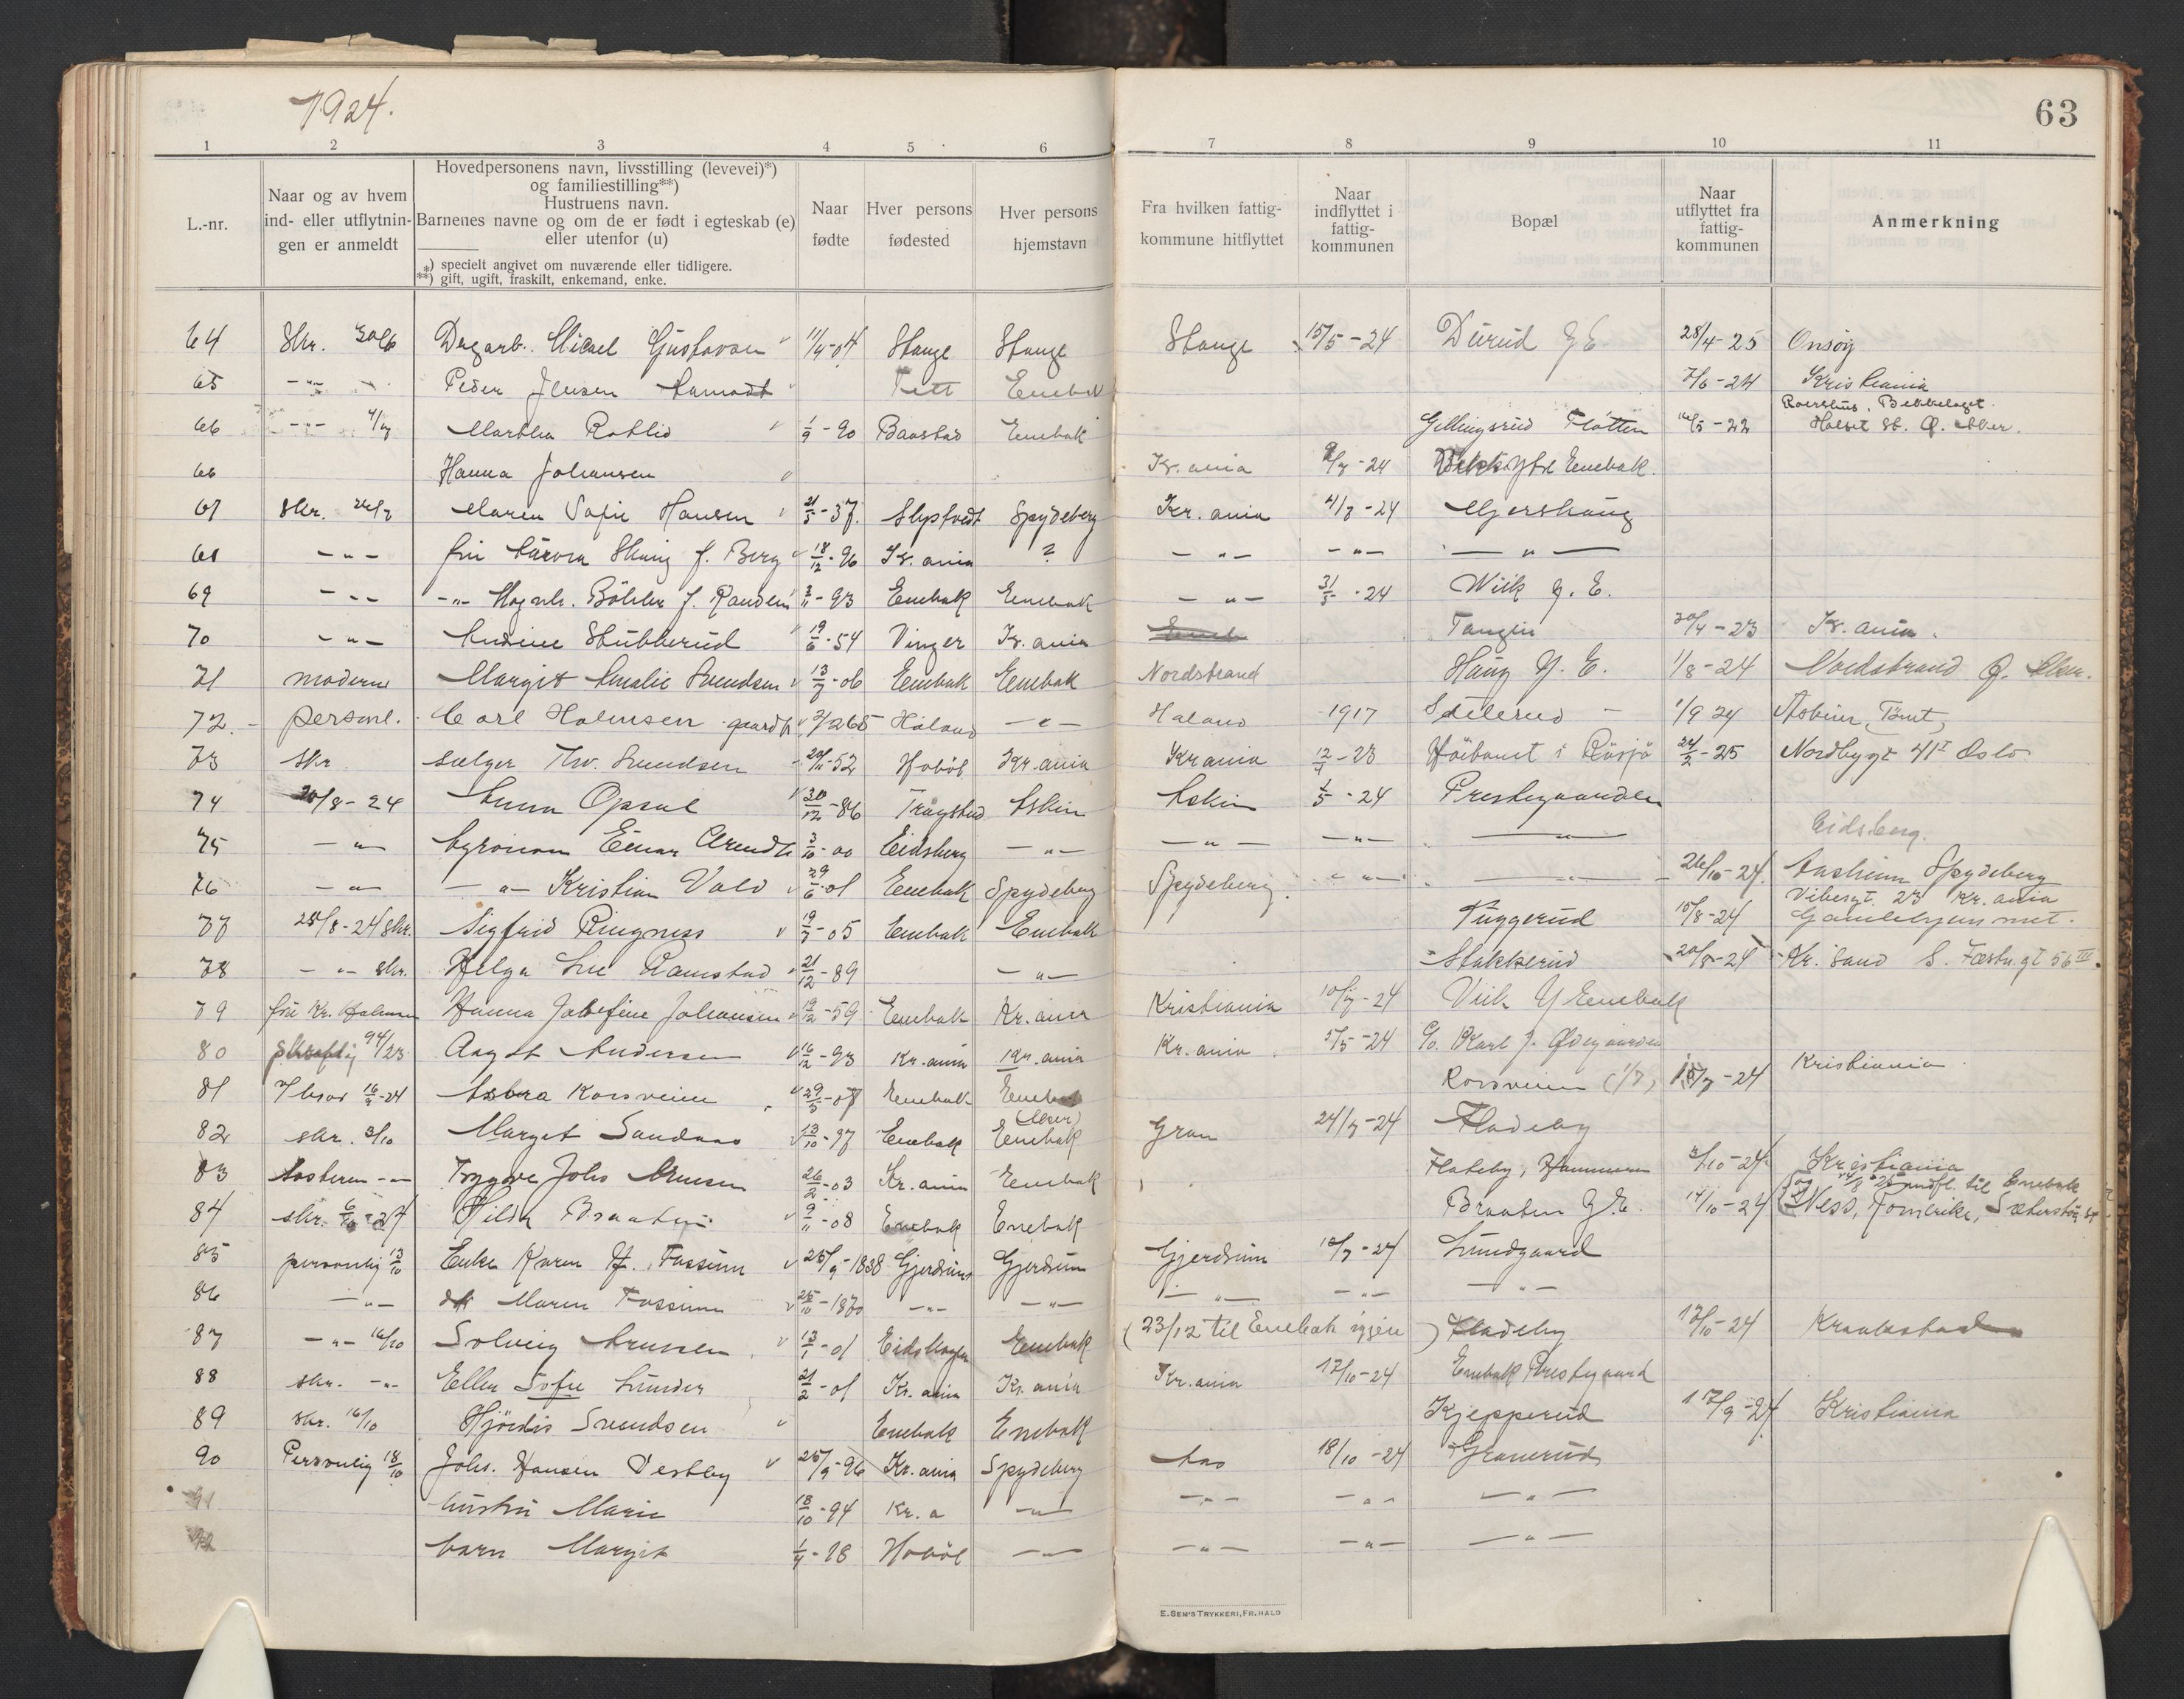 1924.
63
1 2 3 4 5 6 7 8 9 10 11
L.-nr.
Naar og av hvem ind- eller utflytnin- gen er anmeldt
Hovedpersonens navn, livsstilling (levevei)*)
og familiestilling**)
Hustruens navn.
Barnenes navne og om de er født i egteskab (e)
eller utenfor (u)
*) specielt angivet om nuværende eller tidligere.
**) gift, ugift, fraskilt, enkemand, enke.
Naar fødte
Hver persons fødested
Hver persons hjemstavn
Fra hvilken fattig- kommune hitflyttet
Naar indflyttet i fattig- kommunen
Bopæl
Naar utflyttet fra fattig- kommunen
Anmerkning
64 Skr. Dagarb. Micael Gustavsen 11/4-04 Stange Stange Stange 15/5-24 Durud Y E 28/4-25 Onsøy
65 -"- Peder Jensen Enebak 7/6-24 Kristiania
66 -"- Martha Rotlid 1/9-90 Baastad Enebak Gillingsrud Fløtten 14/5-22 Roershus, Bekkelaget
66 Hanna Johansen Kr.ania /7-24 Ytre Enebak.
67 Skr. Maren Sofie Hansen 21/5-37. Spydeberg Kr.ania 4/7-24 Mjershaug
68 -"- fru Skaug f. Berg 18/12-96 Kr.ania ? -"- -"- -"-
69 -"- -"- Bøhler f. Randem 3/11-93 Enebak Enebak -"- 31/5-24 Wiik Y. E.
70 -"- Andrine Stubberud 19/6-54 Vinger Kr.ania Tangen 30/4-23 Kr.ania.
71 moderen Margit Amalie Svendsen 13/7-06 Enebak Enebak Nordstrand Haug Y. E. 1/8-24 Nordstrand Ø. Aker.
72.- personl. Carl Holmsen gaardbr 2/2 65 Høland -"- Høland 1917 1/9 24
73 skr. sælger Thv. Svendsen 20/11-52 Hobøl Kr.ania Kr ania 12/4-23 Høibonet i Røsjø 24/2-25 Nordbygt 41 I Oslo
74 20/8-24 Anna Opsal 30/12-86 Trøgstad Askim Askim 1/5-24 Prestegaarden
75 -"- Agronom Einar Arendt 3/10-00 Eidsberg -"- -"- -"- -"- Eidsberg.
76 -"- -"- Kristian Vold 29/6-01 Enebak Spydeberg Spydeberg. -"- -"- 26/10-24. Aasheim Spydeberg
77 25/8-24 skr. Sigfrid Ringnes 19/7-05 Enebak Enebak Tuggerud 15/8-24 Vibesgt. 23 Kr. ania
78 -"- skr. Helga Lie Ramstad 21/12-89 -"- Stakkerud 20/8-24 Kr. sand S. Fæstn.gt 56 III.
79 fru Kr. Holmen Hanna Josefine Johansen 19/12-59 Enebak Kr.ania Kristiania 10/7-24 Viik Y Enebak
80 Skriftlig Aagot Andersen 16/12-93 Kr.ania Kr.ania Kr.ania 1/5-24 C/o. Karl J. Ødegaarden
81 Asbera Korsveien 29/5-07 Enebak Enebak Korsveien (1/7) /7-24 Kristiania
82 skr. 3/10 Margit Sandaas 13/10-97 Enebak (Aker) Enebak Gran 24/7-24 Fladeby
83 søsteren -"- Trygve Johs Arnesen 26/2-03 Kr.ania Enebak Flateby, Hammeren 2/10-24. Kristiania
84 skr. Hilda Braaten 9/11-08 Enebak Enebak Braaten Y.E. 14/10-24 Ness, Romerike,
85 personlig 13/10 Enke Karen H. Fossum 25/9-1838 Gjerdrum Gjerdrum Gjerdrum 10/7-24 Lundgaard
86 -"- Maren Fossum 25/10-1870 -"- -"- -"- -"- -"-
87 -"- 16/10 Solveig Arnesen 13/1-01 Eidskogen Enebak (23/12 til Enebak igjen) Fladeby 17/10-24 Kraakstad
88 skr. -"- Ellen Sofie Lunder 21/2-01 Kr.ania Kr.ania Kr.ania 17/10-24 Enebak Prestegaard
89 skr. 16/10 Hjørdis Svendsen Enebak Enebak Kjepperud 17/9-24. Kristiania
90 Personlig 18/10 Johs. Hansen Vestby 25/9-96 Kr.ania Spydeberg Aas 18/10-24 Granerud
91 hustru Marie 18/10-94 Kr.a -"- -"- -"- -"-
92 barn Margit 1/4-18 Hobøl -"- -"- -"- -"-
E. SEM'S TRYKKERI, FR.HALD